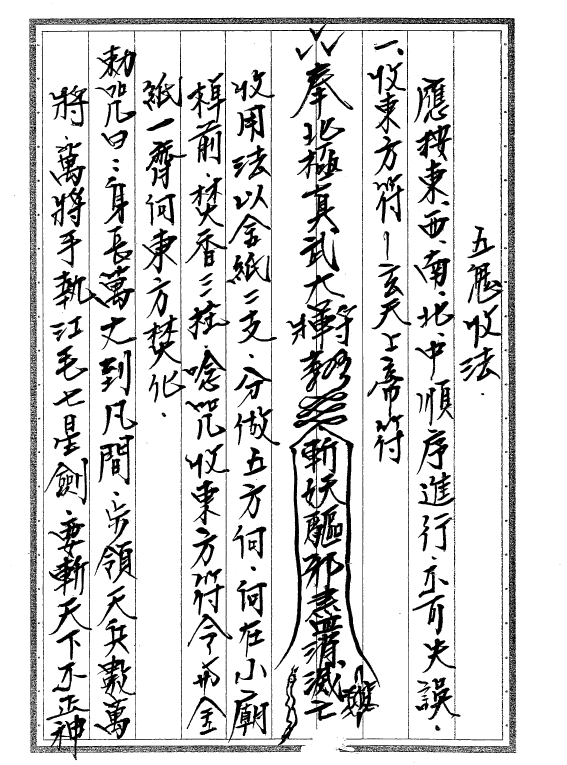 五鬼收法.
應按東、西、南、北、中順序進行.不可失誤.
一、收東方符—玄天上帝符
奉北極真武大將軍敕 斬妖驅邪盡消滅
收用法以金紙二支.分做五方向.向在小廟
棹前.焚香三拄.唸咒收東方符令與金
紙一齊向東方焚化.
勅咒曰:身長萬丈到凡間.步領天兵數萬
將.萬將手執江毛七星劍.要斬天下不正神